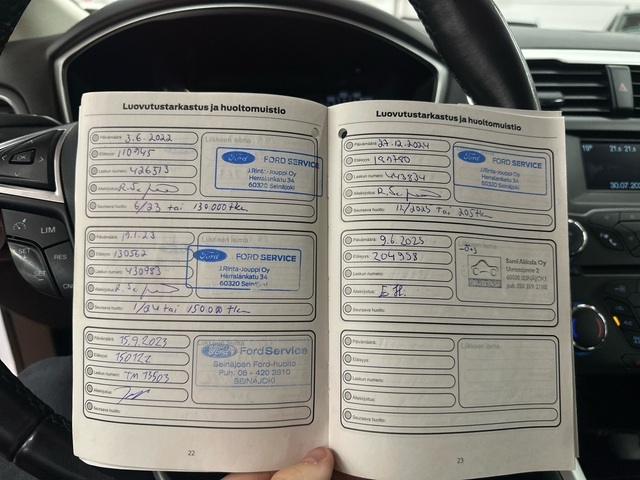 Luovutustarkastus ja huoltomuistio
Päivämäärä: 3.6.2022
Etäisyys: 110945
Laskun numero: 426313
Allekirjoitus:
Seuraava huolto: 6/23 tai 130.000 tkm
Liikkeen leima
Ford FORD SERVICE
J.Rinta-Jouppi Oy
Herralankatu 34
60320 Seinäjoki
Päivämäärä:
Etäisyys: 130562
Laskun numero: 430983
Allekirjoitus:
Seuraava huolto: 1/24 tai 150.000 tkm
Liikkeen leima
Ford FORD SERVICE
J.Rinta-Jouppi Oy
Herralankatu 34
60320 Seinäjoki
Päivämäärä: 15.9.2023
Etäisyys: 150122
Laskun numero: TM 13503
Allekirjoitus:
Seuraava huolto:
Ford Ford Service
Seinäjoen Ford-huolto
Puh. 06 - 420 2910
SEINÄJOKI
22
Luovutustarkastus ja huoltomuistio
Päivämäärä: 27.12.2024
Etäisyys:
Laskun numero: 443834
Allekirjoitus:
Seuraava huolto: 12/2025 Tai 205 tkm
Ford FORD SERVICE
J.Rinta-Jouppi Oy
Herralankatu 34
60320 Seinäjoki
Päivämäärä: 9.6.2025
Etäisyys: 204998
Laskun numero:
Allekirjoitus: E H.
Seuraava huolto:
Sami Alkiola Oy
Päivämäärä:
Etäisyys:
Laskun numero:
Allekirjoitus:
Seuraava huolto:
Liikkeen leima
23
OK
LIM
RES
19
21.6 21.6
30.07.20